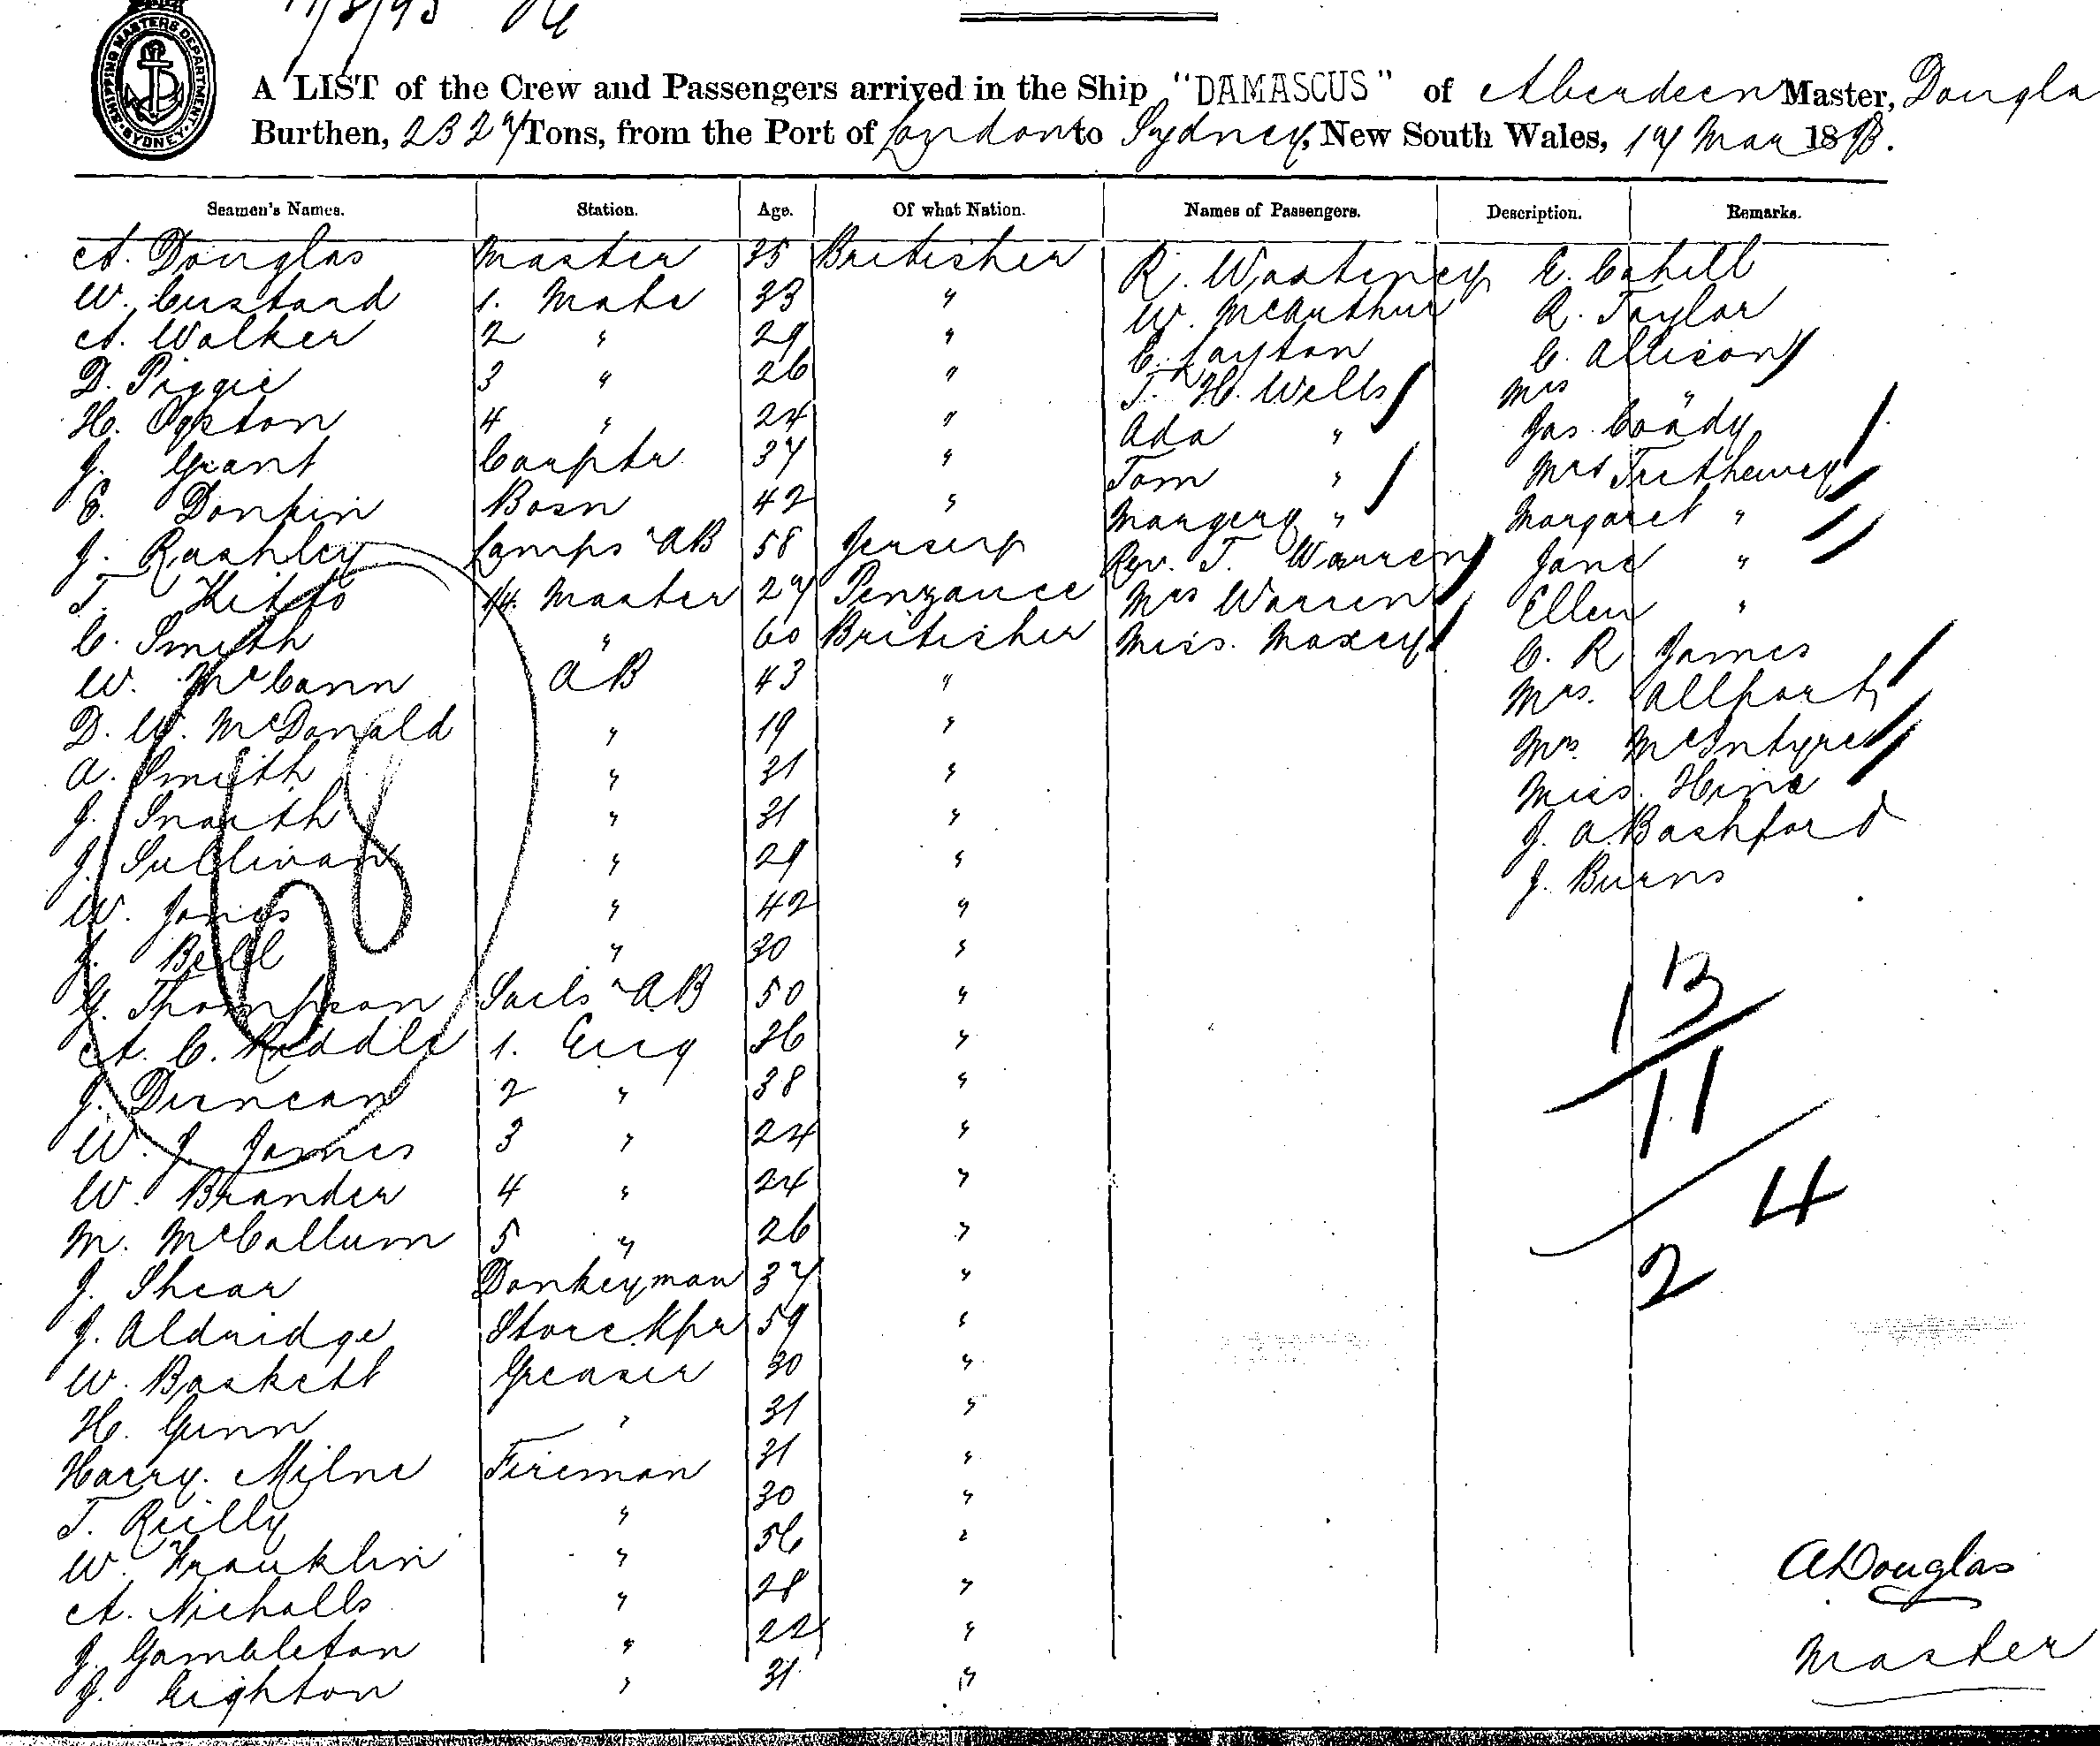 17/3/93
SHIPPING MASTERS DEPARTMENT SYDNEY
A LIST of the Crew and Passengers arrived in the Ship "DAMASCUS" of Aberdeen Master, Dougla
Burthen, 2327 Tons, from the Port of London to Sydney, New South Wales, 17 Mar 1893.
Seamen's Names. Station. Age. Of what Nation. Names of Passengers. Description. Remarks.
A. Douglas Master 35 Britisher R. Wasteney E. Cahill
W. Custard 1. Mate 33 " W. McArthur R. Taylor
A. Walker 2 " 29 " C. Layton C. Allison
D. Piggie 3 " 26 " T. H. Wells Mrs "
H. Ogston 4 " 24 " Ada " Jas. Coady
J. Grant Carptr 37 " Tom " Mrs Trethewey
E. Donkin Bosn 42 " Margery " Margaret "
J. Rashley Lamps AB 58 Jersey Rev. T. Warren Jane "
T. Kitto Master 27 Penzance Mrs Warren Ellen "
C. Smyth " 60 Britisher Miss. Maxey C. R. James
W. McCann AB 43 " Mrs. Allport
D. W. McDonald " 19 " Mrs. McIntyre
A. Smith " 31 " Miss. Hine
J. Snaith " 31 " J. A. Bashford
J. Sullivan " 29 " J. Burns
W. Jones " 42 "
J. Bell " 30 "
G. Thompson Sails AB 50 "
A. C. Riddle 1. Eng 36 "
J. Duncan 2 " 38 "
W. J. James 3 " 24 "
W. Brander 4 " 24 "
M. McCallum 5 " 26 "
J. Shear Donkeyman 37 "
J. Aldridge Storekpr 59 "
W. Baskett Greaser 30 "
H. Gunn " 31 "
Harry. Milne Fireman 31 "
T. Reilly " 30 "
W. Franklin " 56 "
A. Nicholls " 28 "
J. Gambleton " 22 "
J. Leighton " 31 "
68
13
11
4
2
A Douglas
Master